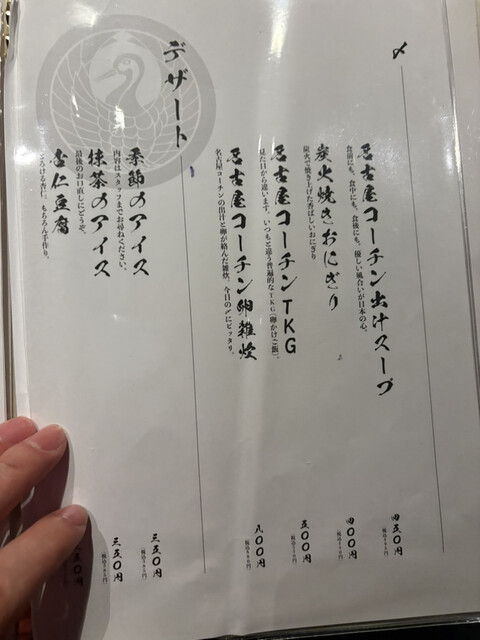 〆
名古屋コーチン出汁スープ
食前にも、食中にも、食後にも。優しい風合いが日本の心。
四五〇円
炭火焼きおにぎり
炭火で焼き上げた香ばしいおにぎり
四〇〇円
名古屋コーチンTKG
見た目から違います。いつもと違う普遍的なTKG（卵かけご飯）。
五〇〇円
名古屋コーチン卵雑炊
名古屋コーチンの出汁と卵が絡んだ雑炊。今日の〆にピッタリ。
九〇〇円
デザート
季節のアイス
内容はスタッフまでお尋ねください。
三五〇円
抹茶のアイス
最後のお口直しにどうぞ。
三五〇円
杏仁豆腐
とろける杏仁。もちろん手作り。
五〇円